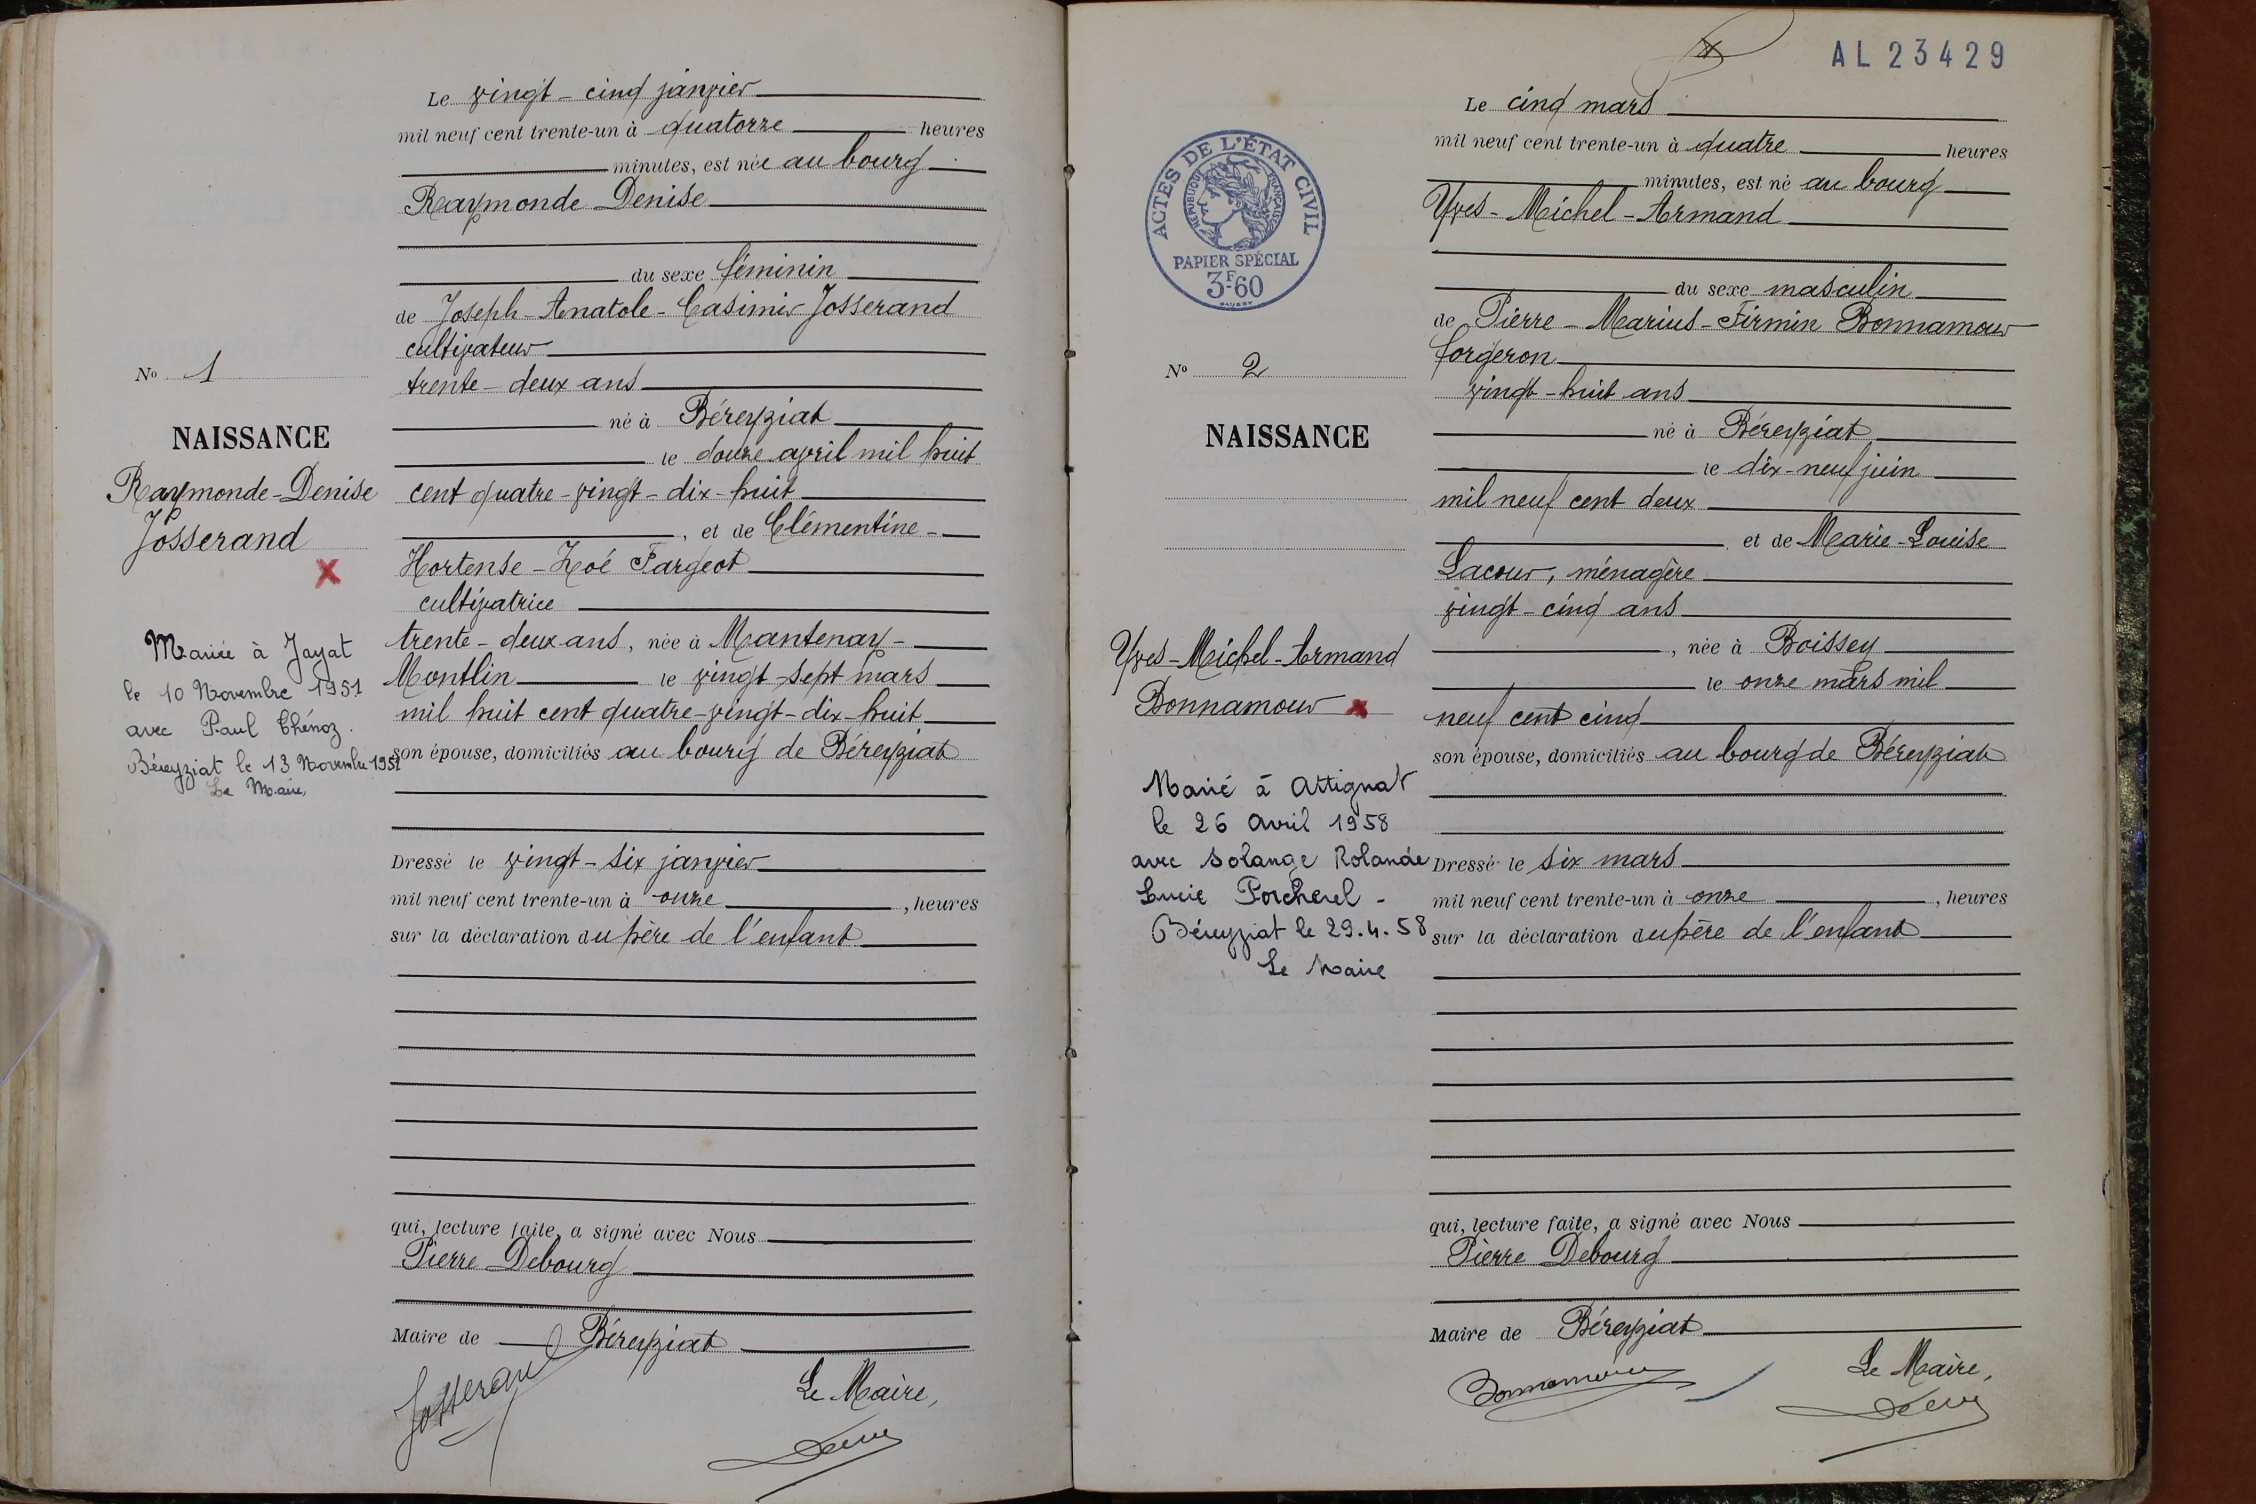 Le vingt-cinq janvier
mil neuf cent trente-un à quatorze heures
minutes, est née au bourg
Raymonde Denise
du sexe féminin
de Joseph-Anatole-Casimir Josserand
cultivateur
trente-deux ans
né à Béreyziat
le douze avril mil huit
cent quatre-vingt-dix-huit
, et de Clémentine-
Hortense-Zoé Fargeot
cultivatrice
trente-deux ans, née à Mantenay-
Montlin le vingt-sept mars
mil huit cent quatre-vingt-dix-huit
son épouse, domiciliés au bourg de Béreyziat
Dressé le vingt-six janvier
mil neuf cent trente-un à onze, heures
sur la déclaration du père de l'enfant
qui, lecture faite, a signé avec Nous
Pierre Debourg
Maire de Béreyziat
Josserand
Le Maire,
No 1
NAISSANCE
Raymonde-Denise
Josserand
Mariée à Jayat
le 10 Novembre 1951
avec Paul Thénoz.
Béreyziat le 13 Novembre 1951
Le Maire,
AL 23429
ACTES DE L'ÉTAT CIVIL
RÉPUBLIQUE FRANÇAISE
PAPIER SPÉCIAL
3F60
No 2
NAISSANCE
Yves-Michel-Armand
Bonnamour
Marié à Attignat
le 26 Avril 1958
avec Solange Rolande
Lucie Porcherel -
Béreyziat le 29.4.58
Le Maire
Le cinq mars
mil neuf cent trente-un à quatre heures
minutes, est né au bourg
Yves-Michel-Armand
du sexe masculin
de Pierre-Marius-Firmin Bonnamour
forgeron
vingt-huit ans
né à Béreyziat
le dix-neuf juin
mil neuf cent deux
et de Marie-Louise
Lacour, ménagère
vingt-cinq ans
, née à Boissey
le onze mars mil
neuf cent cinq
son épouse, domiciliés au bourg de Béreyziat
Dressé le six mars
mil neuf cent trente-un à onze, heures
sur la déclaration du père de l'enfant
qui, lecture faite, a signé avec Nous
Pierre Debourg
Maire de Béreyziat
Bonnamour
Le Maire,